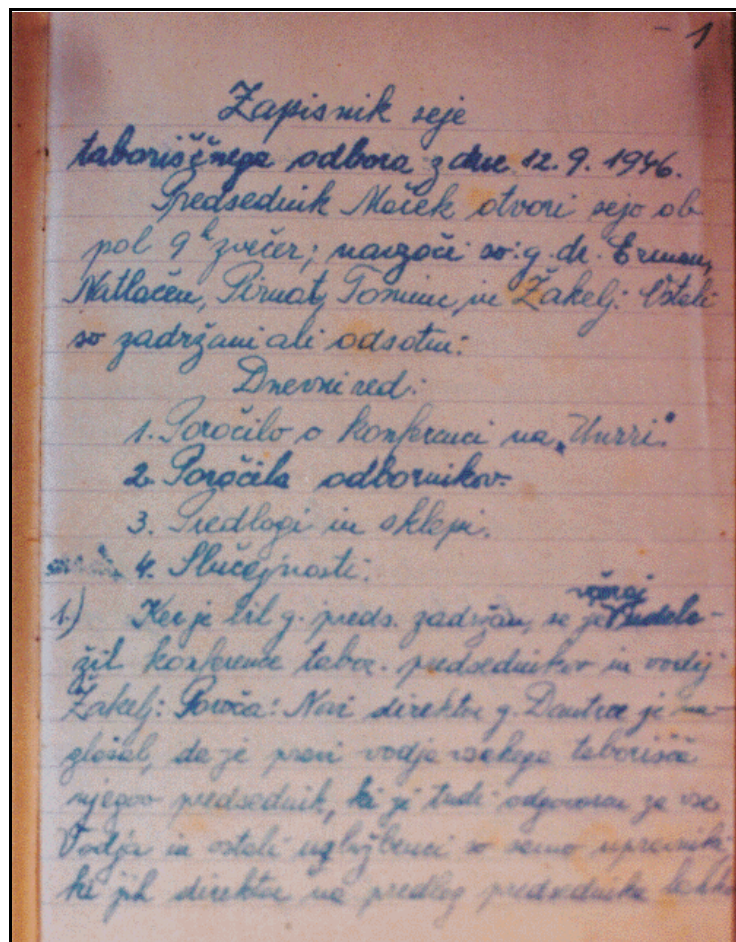 - 1
Zapisnik seje
taboriščnega odbora z dne 12. 9. 1946.
Predsednik Maček otvori sejo ob
pol 9h zvečer; navzoči so: g. dr. Erman,
Natlačen, Pirnat, Tominc in Žakelj. Ostali
so zadržani ali odsotni.
Dnevni red:
1. Poročilo o konferenci na „Unrri."
2. Poročila odbornikov.
3. Predlogi in sklepi.
4. Slučajnosti.
včeraj
1.) Ker je bil g. preds. zadržan, se je udele-
žil konference tabor. predsednikov in vodij
Žakelj: Poroča: Novi direktor g. je na-
glašal, da je pravi vodja vsakega taborišča
njegov predsednik, ki je tudi odgovoren za vse
Vodja in ostali uslužbenci so samo upravniki
ki jih direktor na predlog predsednika lahko